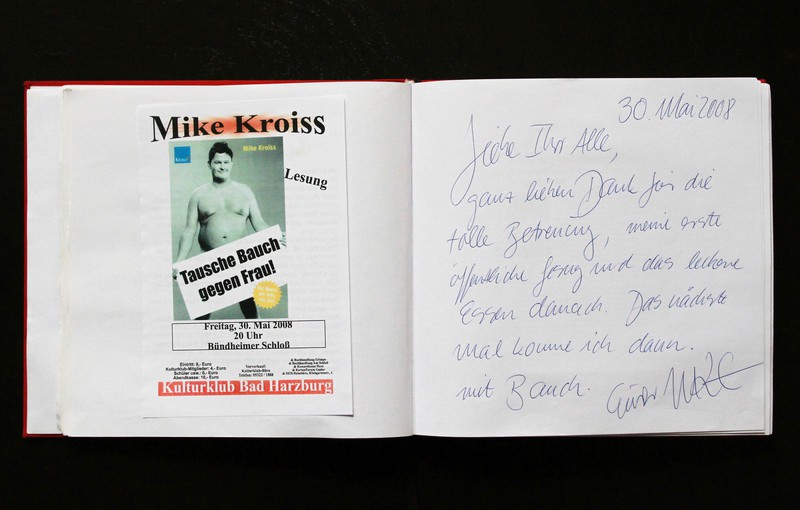 Mike Kroiss
Mike Kroiss
Lesung
Tausche Bauch
gegen Frau!
Freitag, 30. Mai 2008
20 Uhr
Bündheimer Schloß
Eintritt: 8,- Euro
Kulturklub-Mitglieder: 4,- Euro
Schüler usw.: 6,- Euro
Abendkasse: 10,- Euro
Vorverkauf:
Kulturklub-Büro
Telefon: 05322 / 1888
Kulturklub Bad Harzburg
30. Mai 2008
Liebe Ihr Alle,
ganz lieben Dank für die
tolle Betreuung, meine erste
öffentliche Lesung und das leckere
Essen danach. Das nächste
Mal komme ich dann
mit Bauch.